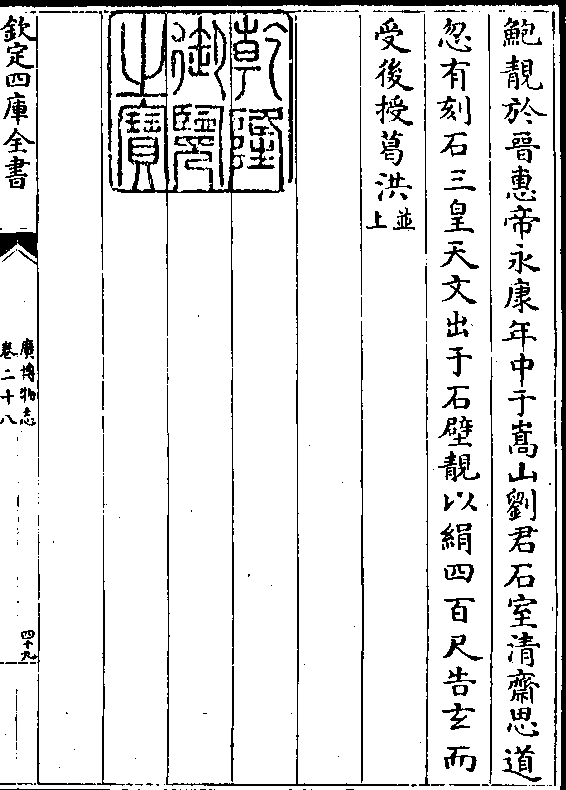 鮑靚於晉惠帝永康年中于嵩山劉君石室清齋思道
忽有刻石三皇天文出于石壁靚以絹四百尺告玄而
受後授葛洪並
上
乾隆
御覽
之寶
欽定四庫全書
廣博物志
卷二十八
四十九